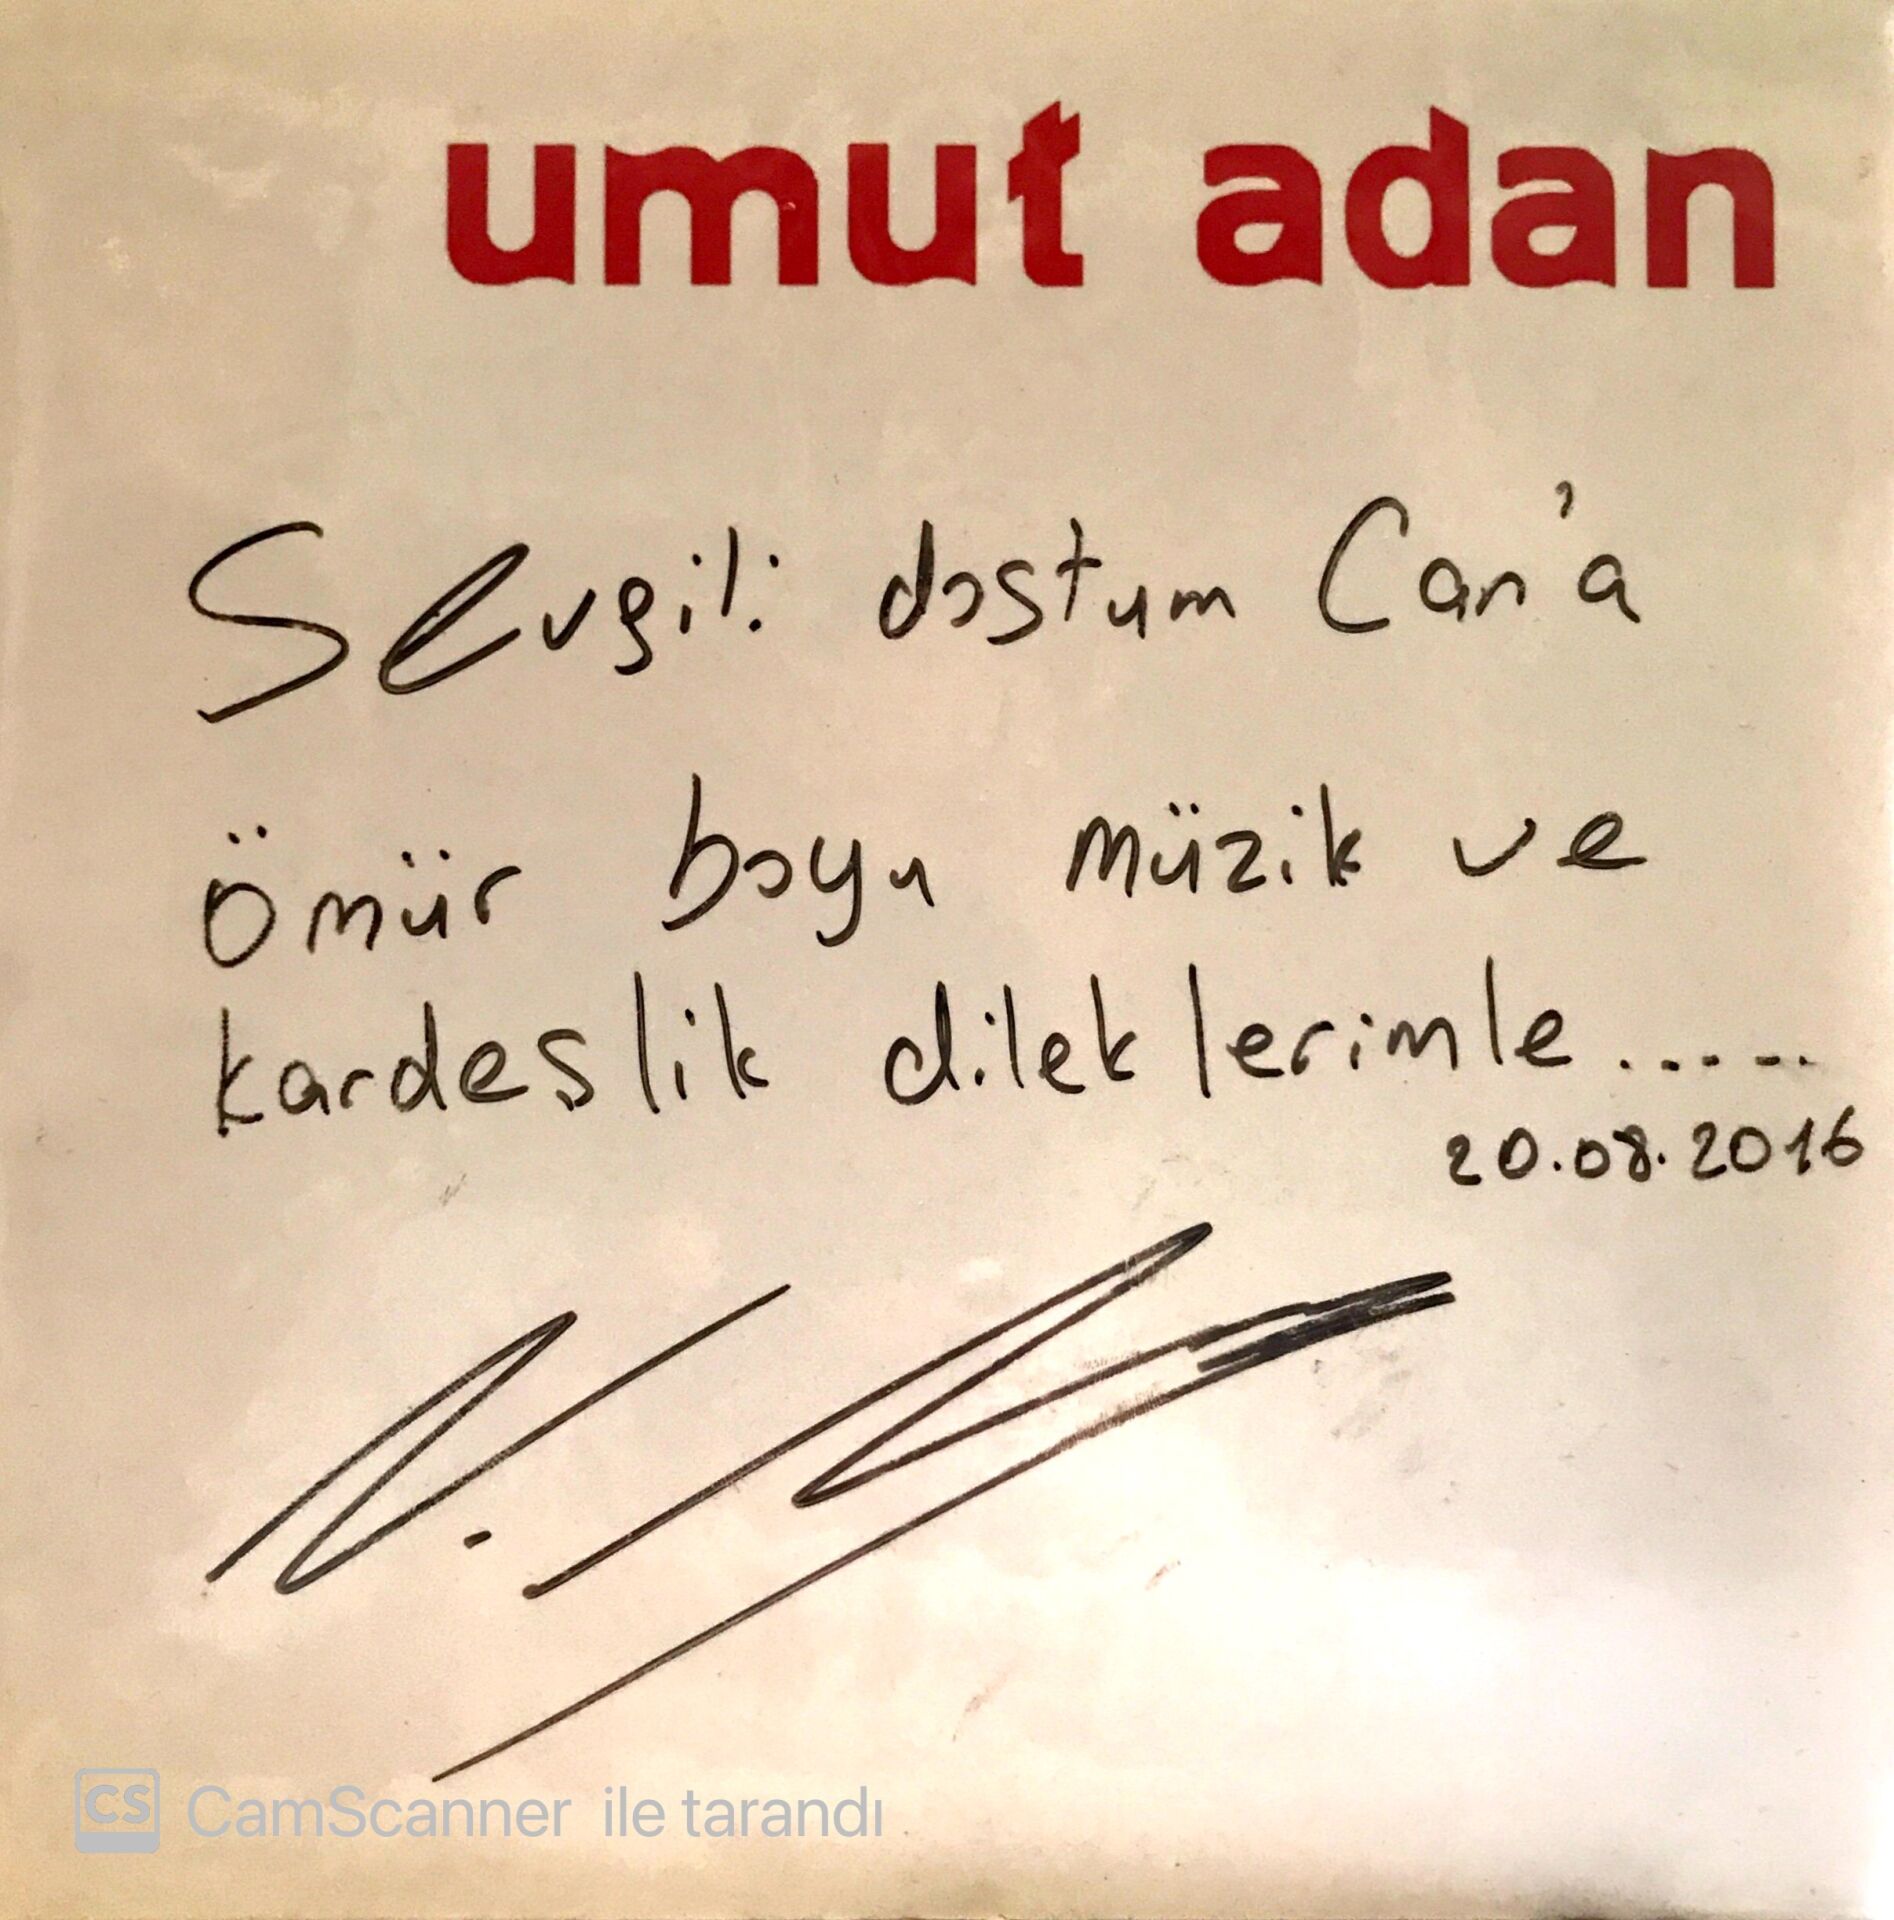 umut adan
Sevgili dostum Can'a
Ömür boyu müzik ve
kardeşlik dileklerimle......
20.08.2016
CS CamScanner ile tarandı